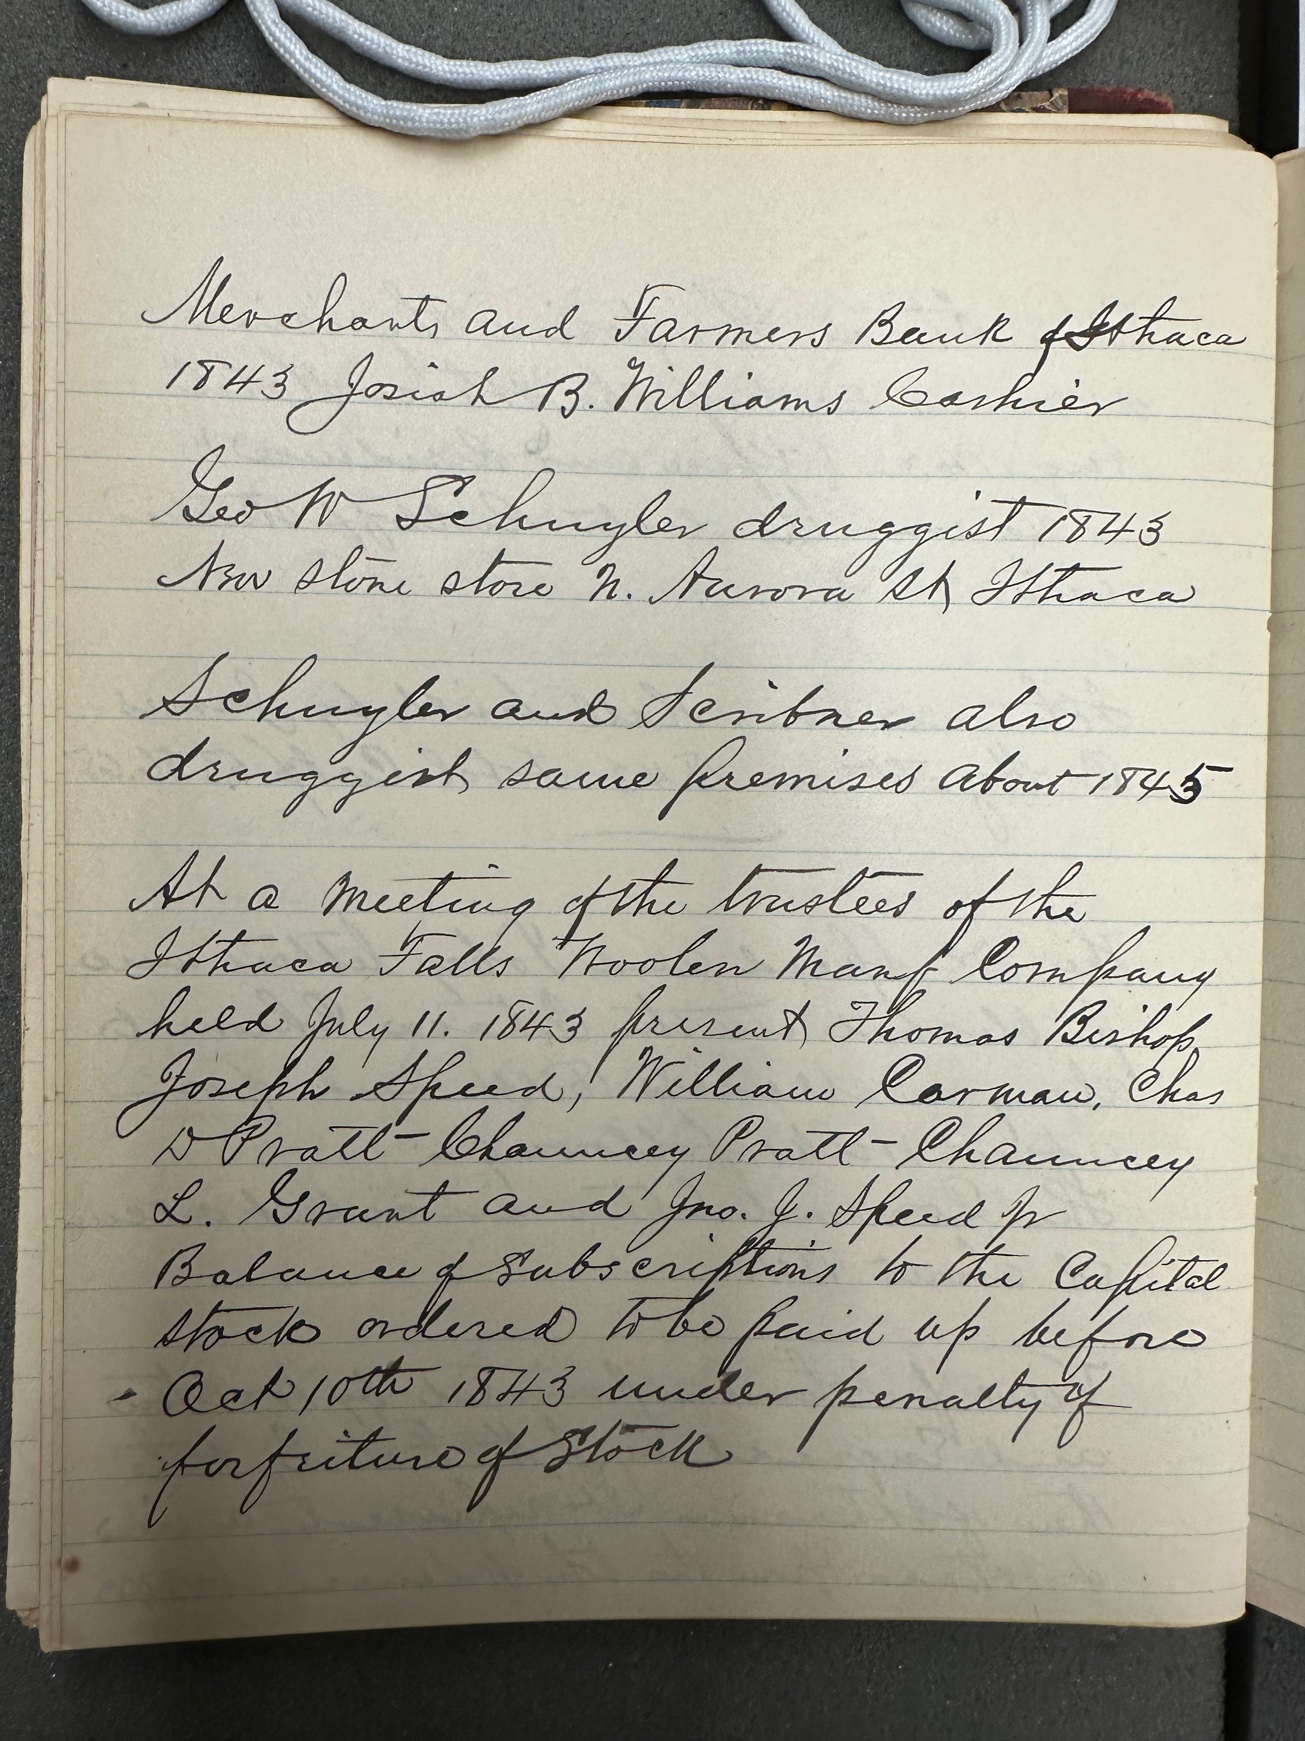 Merchants and Farmers Bank of Ithaca
1843 Josiah B. Williams Cashier
Geo W Schuyler druggist 1843
New stone store N. Aurora St Ithaca
Schuyler and Scribner also
druggist same premises about 1845
At a meeting of the trustees of the
Ithaca Falls Woolen Manf Company
held July 11. 1843 present Thomas Bishop
Joseph Speed, William Carman, Chas
D Pratt - Chauncey Pratt - Chauncey
L. Grant and Jno. J. Speed Jr
Balance of Subscriptions to the Capital
stock ordered to be paid up before
Oct 10th 1843 under penalty of
forfeiture of Stock